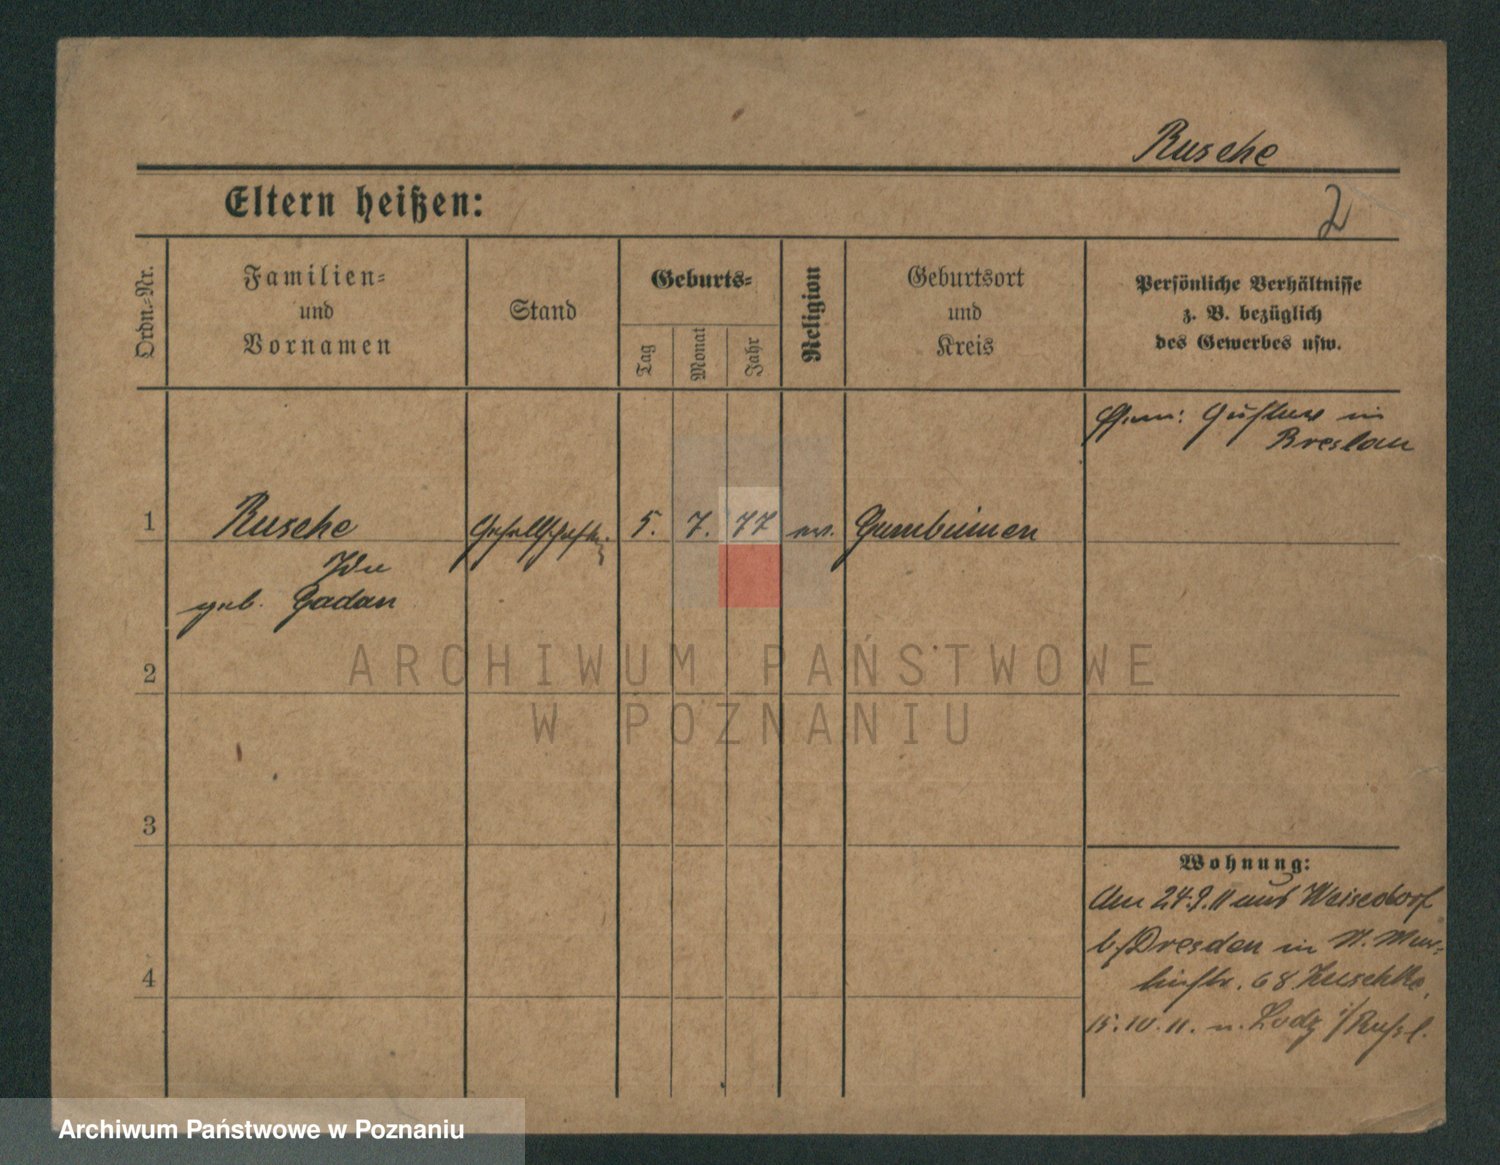 Rusche
Eltern heißen:
2
Ordn.-Nr.
Familien-
und
Vornamen
Stand
Geburts-
Tag
Monat
Jahr
Religion
Geburtsort
und
Kreis
Persönliche Verhältnisse
z. B. bezüglich
des Gewerbes usw.
in
Breslau
1
Rusche
5. 7. 77
ev.
Gumbinnen
Ida
geb. Gadan
2
ARCHIWUM PAŃSTWOWE
W POZNANIU
3
Wohnung:
Am 24.9.11 aus
b/Dresden in
68
4
15.10.11. n. Lodz i/Rußl.
Archiwum Państwowe w Poznaniu